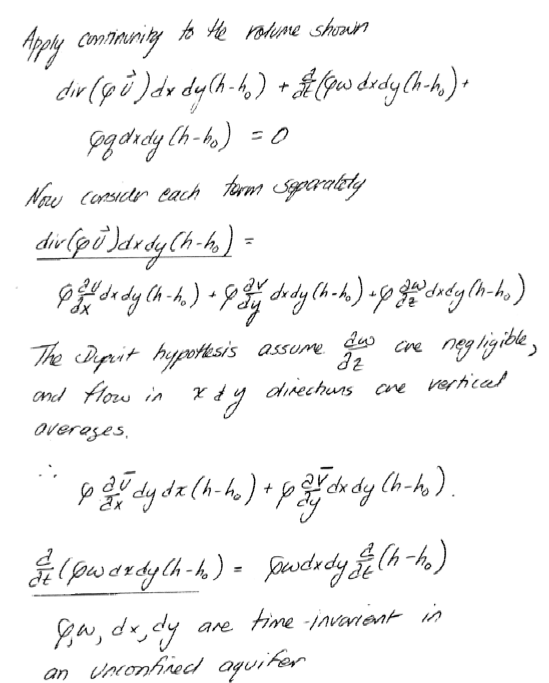 Apply continuity to the volume shown
div(ρu⃗)dx dy(h-h₀) + d/dt(ρw dxdy(h-h₀) +
ρq dxdy (h-h₀) = 0
Now consider each term separately
div(ρu⃗)dxdy(h-h₀) =
ρ ∂u/∂x dxdy(h-h₀) + ρ ∂v/∂y dxdy(h-h₀) + ρ ∂w/∂z dxdy(h-h₀)
The Dupuit hypothesis assume ∂w/∂z are negligible,
and flow in x & y directions are vertical
averages.
∴ ρ ∂ū/∂x dy dx (h-h₀) + ρ ∂v̄/∂y dx dy (h-h₀).
d/dt(ρw dxdy(h-h₀) = ρwdxdy d/dt(h-h₀)
ρ,w, dx, dy are time-invarient in
an unconfined aquifer